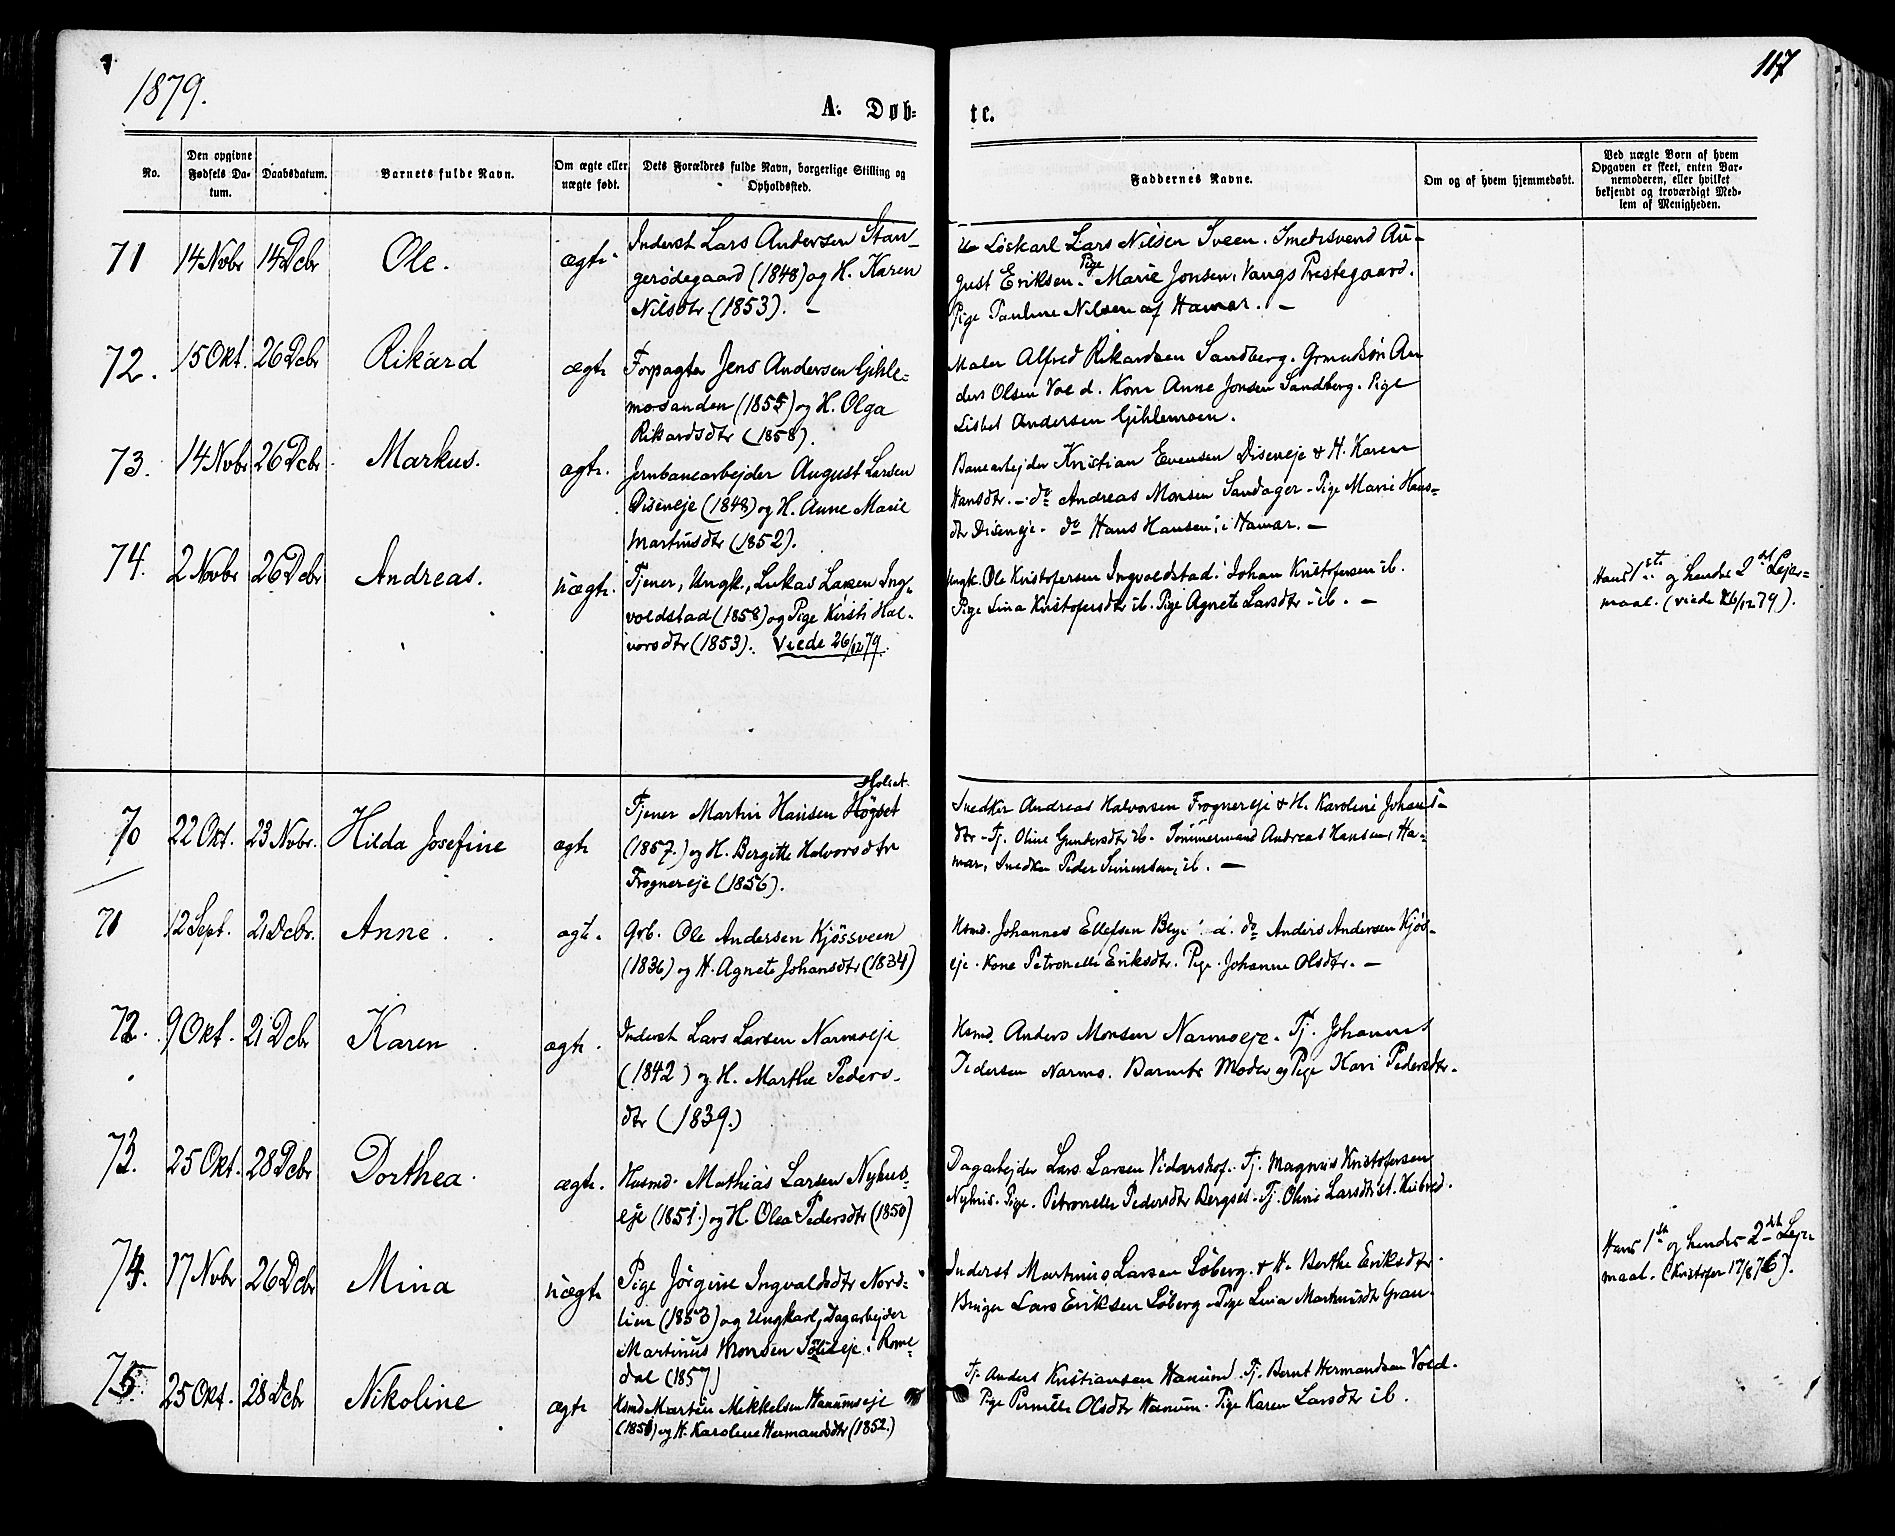 1879.
117
A. Døb-
te.
No.
Den opgivne Fødsels Datum.
Daabsdatum.
Barnets fulde Navn.
Om ægte eller nægte født.
Dets Forældres fulde Navn, borgerlige Stilling og Opholdssted.
Faddernes Navne.
Om og af hvem hjemmedøbt.
Ved nægte Børn af hvem Opgaven er skeet, enten Barnemoderen, eller hvilket bekjendt og troværdigt Medlem af Menigheden.
71 14 Novbr 14 Dcbr Ole. ægte
Inderst Lars Andersen Stan-
gerødegaard (1848) og H. Karen
Nilsdtr (1853). –
Løskarl Lars Nilsen Sveen. Smedsvend Au-
gust Eriksen. Pige Marie Jonsen, Vangs Prestegaard.
Pige Pauline Nilsen af Hamar. –
72. 15 Okt. 26 Dcbr Rikard ægte
Forpagter Jens Andersen Gihle-
mosanden (1855) og H. Olga
Rikardsdtr (1858).
Maler Alfred Rikardsen Sandberg. Grmdsøn An
ders Olsen Vold. Kone Anne Jonsen Sandberg. Pige
Lisbet Andersen Gihlemoen.
73. 14 Novbr 26 Dcbr. Markus. ægte.
Jernbanearbejder August Larsen
Diseneje (1848) og H. Anne Marie
Martinsdtr (1852).
Banearbejder Kristian Evensen Diseneje & H. Karen
Hansdtr. – do Andreas Monsen Sandager – Pige Marie Hans-
dtr Diseneje – do Hans Hansen, i Hamar. –
74. 2 Novbr 26 Dcbr Andreas. uægte.
Tjener, Ungk., Lukas Larsen Ing-
voldstad (1858) og Pige Kirsti Hal-
vorsdtr (1853). Viede 26/12 79.
Ungk. Ole Kristofersen Ingvoldstad. Johan Kristofersen ib.
Pige Lina Kristofersdtr ib. Pige Agnete Larsdtr ib. –
Hans 1ste og hendes 2det Lejer-
maal. (viede 26/12 79).
70 22 Okt. 23 Novbr. Hilda Josefine ægte
Holset
Tjener Martin Hansen Høgset
(1857.) og H. Bergitte Halvorsdtr
Frognereje (1856).
Snedker Andreas Halvorsen Frognereje & H. Karoline Johans-
dtr – Tj. Oline Gundersdtr ib. Tømmermand Andreas Hansen, Ha-
mar, Snedker Peder Simensen, ib. –
71 12 Sept. 21 Dcbr. Anne. ægte.
Grb. Ole Andersen Kjøssveen
(1836) og H. Agnete Johansdtr (1834)
Hsmd. Johannes Ellefsen do Anders Andersen Kjøs-
eje. Kone Petronelle Eriksdtr. Pige Johanne Olsdtr. –
72. 9 Okt. 21 Dcbr Karen ægte.
Inderst Lars Larsen Narmoeje
(1842) og H. Marthe Peders-
dtr (1839.)
Hsmd. Anders Monsen Narmoeje. Tj. Johannes
Pedersen Narmo. Barnets Moder og Pige Kari Pedersdtr.
73. 25 Okt. 28 Dcbr Dorthea. ægte.
Husmd. Mathias Larsen Nyhus-
eje (1851.) og H. Olea Pedersdtr (1850)
Dagarbejder Lars Larsen Vidarshof. Tj. Magnus Kristofersen
Nyhus. Pige Petronelle Pedersdtr Bergset. Tj. Oline Larsdtr
74. 17 Novbr 26 Dcbr Mina uægte
Pige Jørgine Ingvaldsdtr Nord-
lien (1853) og Ungkarl, Dagarbejder
Martinus Monsen i Rome-
dal (1857)
Inderst Martinus Larsen Løberg & H. Berthe Eriksdtr.
Bruger Lars Eriksen Løberg. Pige Lina Martinusdtr Gran.
Hans 1ste og hendes 2det Lejer-
maal. (Kristofer 17/8 76).
75. 25 Okt. 28 Dcbr Nikoline ægte
Hsmd Martin Mikkelsen Hanumseje
(1851) og H. Karoline Hermandsdtr (1852.)
Tj. Anders Kristiansen Hanum. Tj. Bernt Hermandsen Vold.
Pige Pernille Olsdtr Hanum. Pige Karen Larsdtr ib.